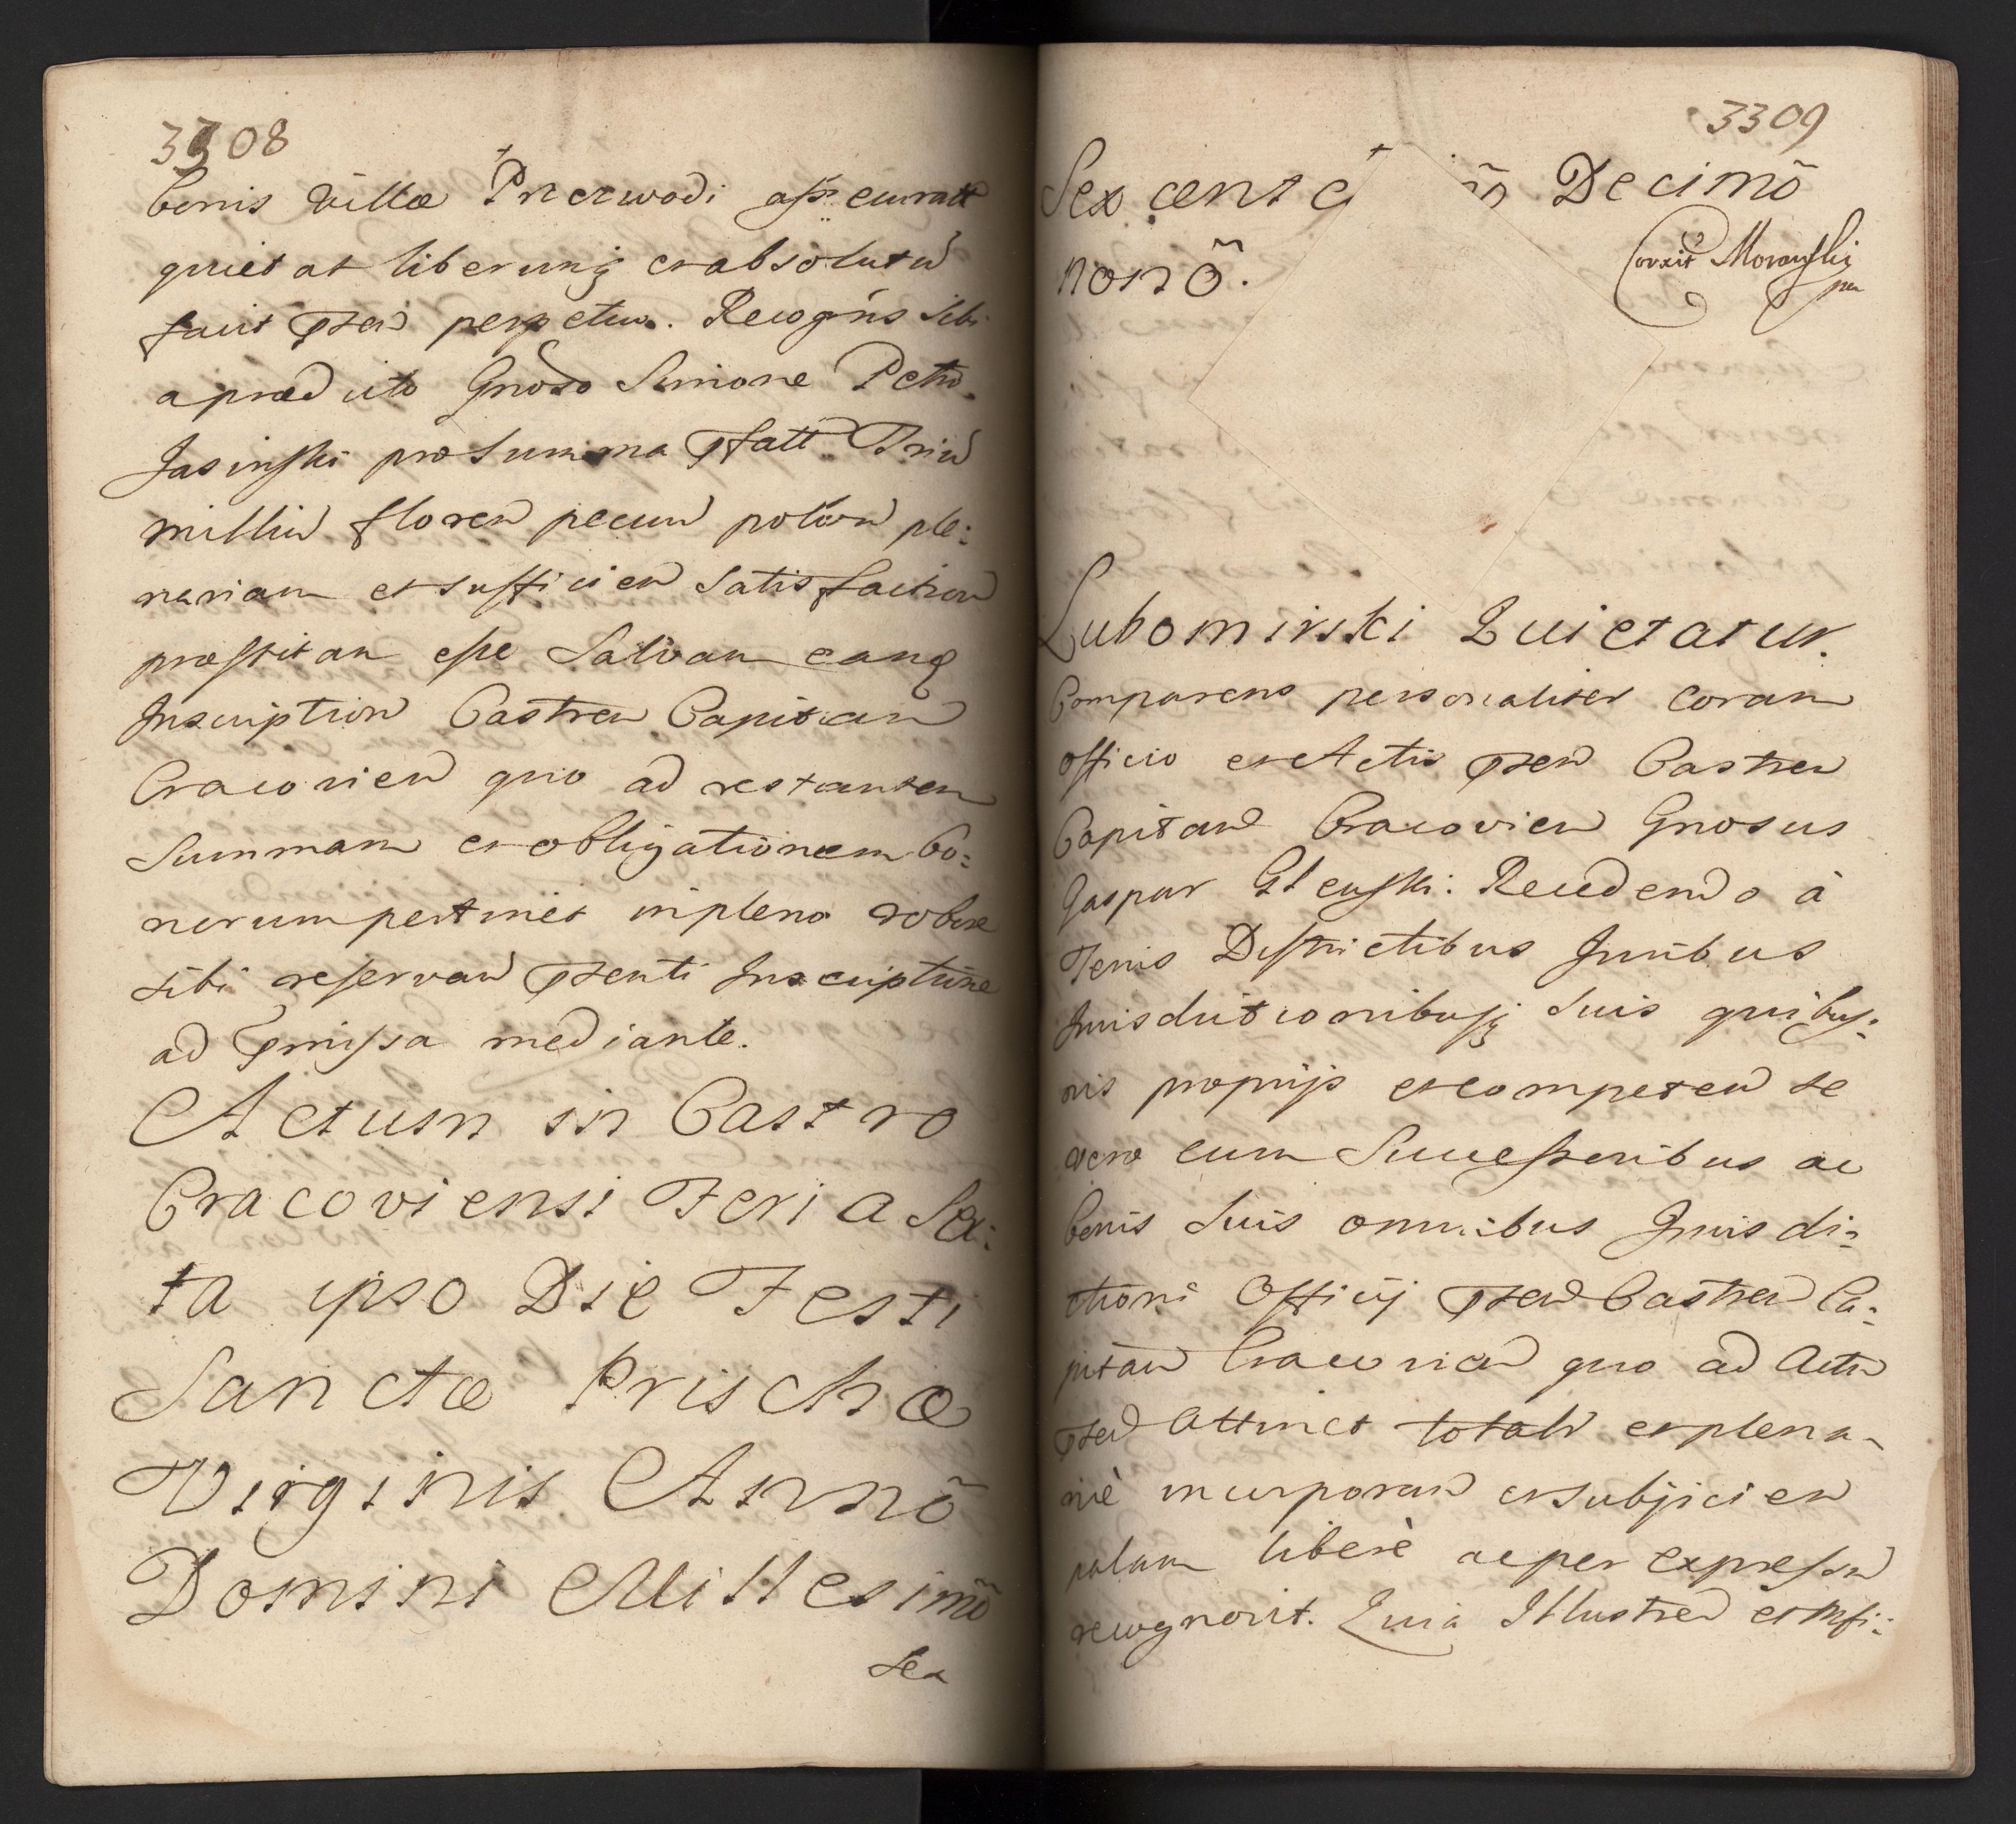 3308
bonis villæ Przewodi assecuratt
quietat liberumq et absolutũ
facit pñtũ perpetuo. Recogñs sibi
a prædicto Gnoso Simone Petro
Jasinski pro summa pfatt Triũ
milliũ floreñ pecuñ poloñ ple:
nariam et sufficieñ satisfactioñ
præstitam esse Salvam eamq
Inscriptioñ Castreñ Capitañ
Cracovieñ quo ad restantem
Summam et obligationem bo:
norum pertinet in pleno robore
sibi reservañ pñti Inscriptione
ad pmissa mediante.
Actum in Castro
Cracoviensi Feria Sex:
ta ipso Die Festi
Sanctæ Prischæ
Virginis Annõ
Domini Millesimõ
Sex
3309
Sexcente õ Decimõ
nonõ.
Correxit Moravski
mp
Lubomirski Quietatur.
Comparens personaliter coram
Officio et Actis pñtñ Castreñ
Capitañ Cracovieñ Gnosus
Gaspar Recedendo à
Terris Districtibus Juribus
Jurisdictionibusq suis quibus:
vis proprijs et competeñ se
vero cum Successoribus ac
bonis suis omnibus Jurisdi:
ctioni Officij pñtñ Castreñ Ca:
pitañ Cracovieñ quo ad Actũ
pñtñ attinet totalr et plena-
riè incorporañ et subjicieñ
palam liberè ac per expressũ
recognovit. Quia Illustreñ et Mfi: